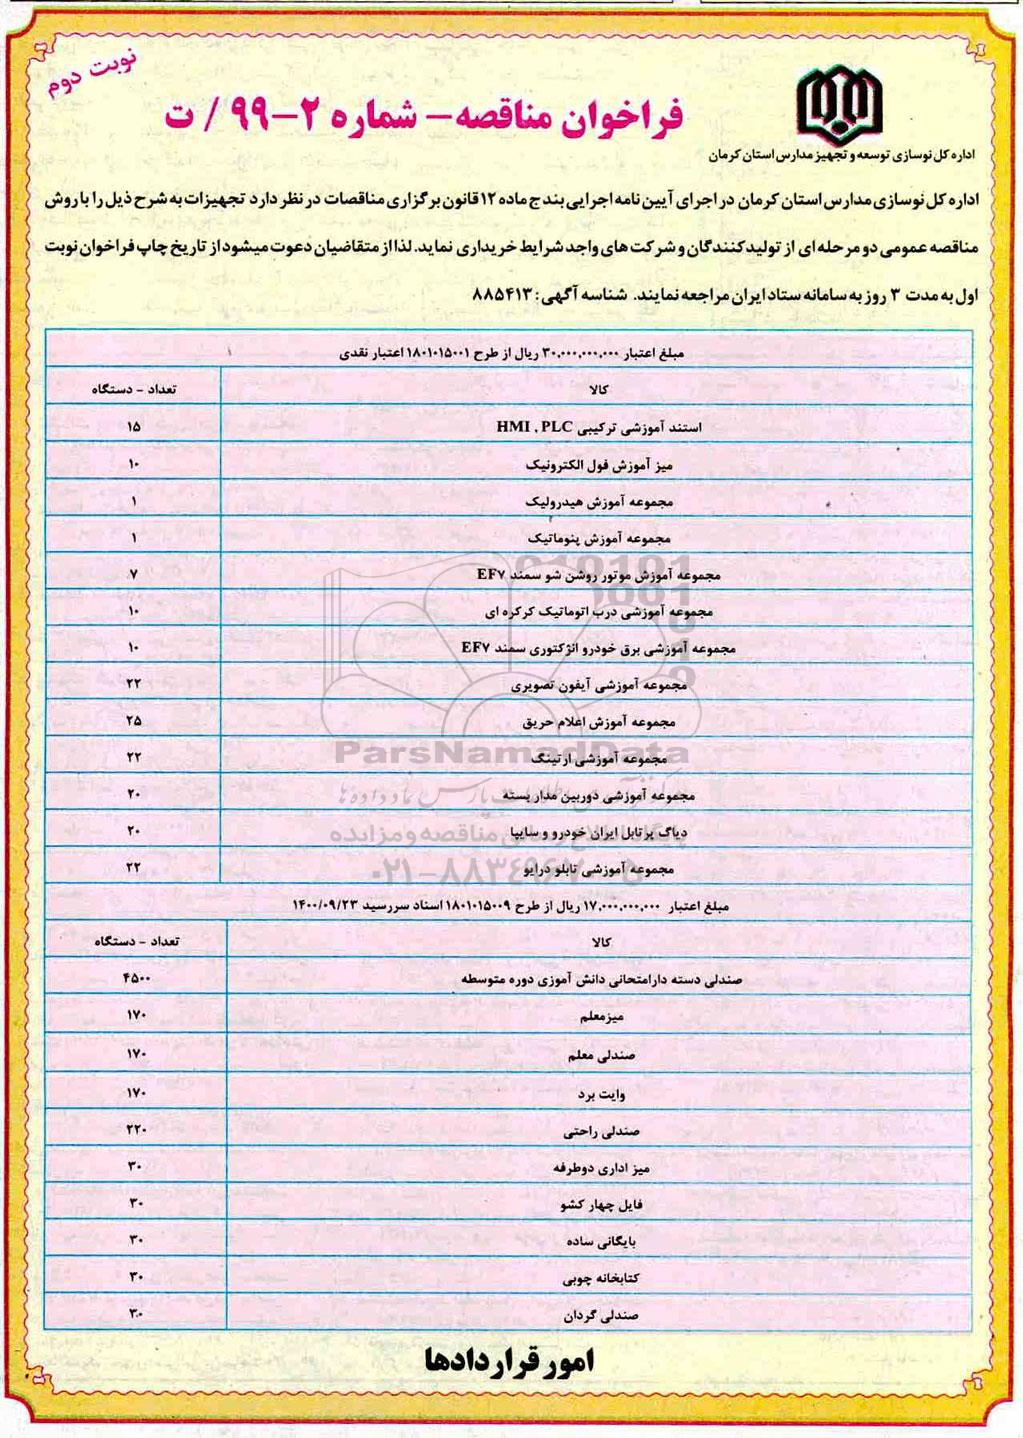 نوبت دوم
فراخوان مناقصه – شماره ۲-۹۹ / ت
اداره کل نوسازی توسعه و تجهیز مدارس استان کرمان
اداره کل نوسازی مدارس استان کرمان در اجرای آیین نامه اجرایی بند ج ماده ۱۲ قانون برگزاری مناقصات در نظر دارد تجهیزات به شرح ذیل را با روش
مناقصه عمومی دو مرحله ای از تولیدکنندگان و شرکت های واجد شرایط خریداری نماید. لذا از متقاضیان دعوت میشود از تاریخ چاپ فراخوان نوبت
اول به مدت ۳ روز به سامانه ستاد ایران مراجعه نمایند. شناسه آگهی: ۸۸۵۴۱۳
مبلغ اعتبار ۳۰،۰۰۰،۰۰۰،۰۰۰ ریال از طرح ۱۸۰۱۰۱۵۰۰۱ اعتبار نقدی
کالا تعداد - دستگاه
استند آموزشی ترکیبی HMI , PLC ۱۵
میز آموزش فول الکترونیک ۱۰
مجموعه آموزش هیدرولیک ۱
مجموعه آموزش پنوماتیک ۱
مجموعه آموزش موتور روشن شو سمند EF۷ ۷
مجموعه آموزشی درب اتوماتیک کرکره ای ۱۰
مجموعه آموزشی برق خودرو انژکتوری سمند EF۷ ۱۰
مجموعه آموزشی آیفون تصویری ۲۲
مجموعه آموزش اعلام حریق ۲۵
مجموعه آموزشی ارتینگ ۲۲
مجموعه آموزشی دوربین مدار بسته ۲۰
دیاگ پرتابل ایران خودرو و سایپا ۲۰
مجموعه آموزشی تابلو درایو ۲۲
مبلغ اعتبار ۱۷،۰۰۰،۰۰۰،۰۰۰ ریال از طرح ۱۸۰۱۰۱۵۰۰۹ اسناد سررسید ۱۴۰۰/۰۹/۲۳
کالا تعداد - دستگاه
صندلی دسته دارامتحانی دانش آموزی دوره متوسطه ۴۵۰۰
میزمعلم ۱۷۰
صندلی معلم ۱۷۰
وایت برد ۱۷۰
صندلی راحتی ۲۲۰
میز اداری دوطرفه ۳۰
فایل چهار کشو ۳۰
بایگانی ساده ۳۰
کتابخانه چوبی ۳۰
صندلی گردان ۳۰
امور قراردادها
ParsNamadData